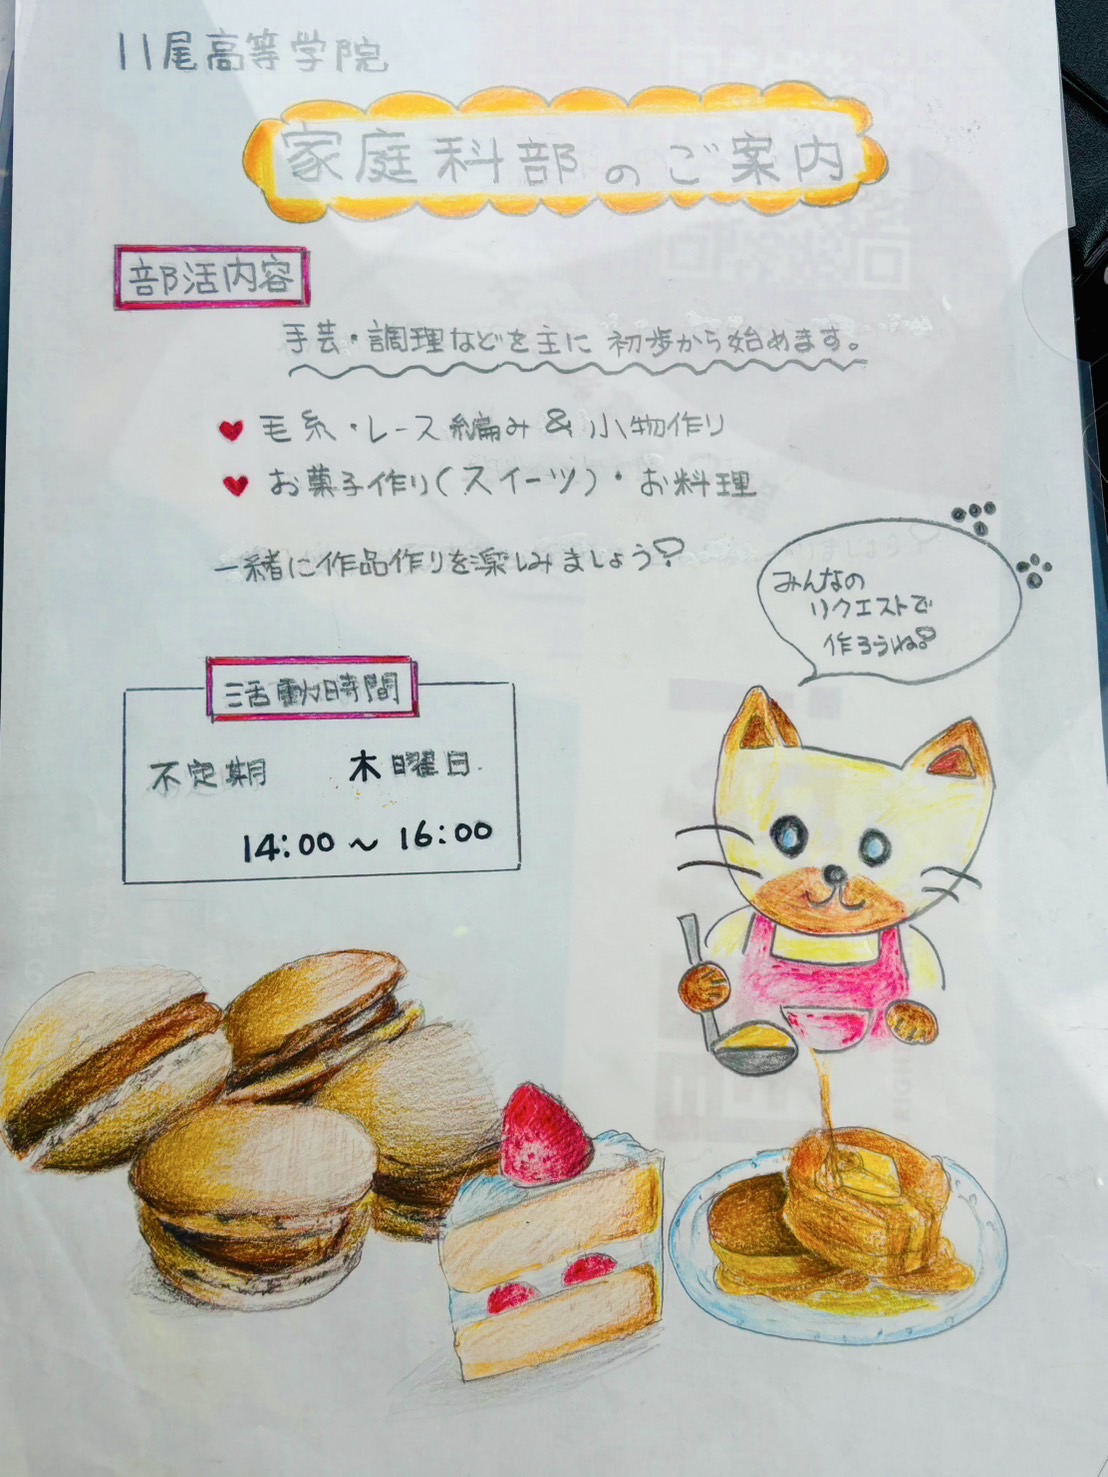 川尾高等学院
家庭科部のご案内
部活内容
手芸・調理などを主に初歩から始めます。
♥ 毛糸・レース編み＆小物作り
♥ お菓子作り(スイーツ)・お料理
一緒に作品作りを楽しみましょう♡
みんなの
リクエストで
作ろうね♡
活動時間
不定期 木曜日
14:00～16:00